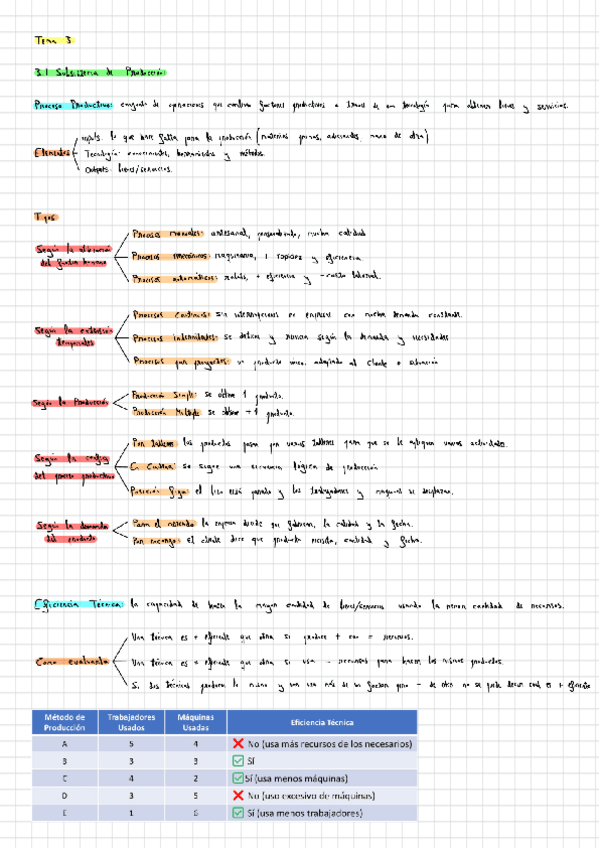 Tema 3
3.1 Subsistema de Producción:
Proceso Productivo: conjunto de operaciones que combina factores productivos a través de una tecnología para obtener bienes y servicios.
Elementos
inputs: lo que hace falta para la producción (materias primas, adicionales, mano de obra)
Tecnología: conocimientos, herramientas y métodos.
Outputs: bienes/servicios.
Tipos
Según la
del factor humano
Procesos manuales: artesanal, mucha calidad
Procesos mecánicos: maquinaria, rapidez y eficiencia.
Procesos automáticos: robots, + eficiencia y - coste laboral.
Según la extensión
temporales
Procesos continuos: sin interrupciones en empresas con mucha demanda constante.
Procesos intermitentes: se detiene y reanuda según la demanda y necesidades
Procesos por proyectos: un producto único, adaptado al cliente o situación
Según la Producción
Producción Simple: se obtiene 1 producto.
Producción Múltiple: se obtiene +1 producto.
Según la config
del proceso productivo
Por talleres: los productos pasan por varios talleres para que se le apliquen varias actividades.
En Cadena: se sigue una secuencia lógica de producción
Posición fija: el bien está parado y los trabajadores y máquinas se desplazan.
Según la demanda
del producto
Para el mercado: la empresa decide que fabricar, la calidad y la fecha.
Por encargo: el cliente dice que producto necesita, cantidad y fecha.
Eficiencia Técnica: la capacidad de hacer la mayor cantidad de bienes/servicios usando la menor cantidad de recursos.
Como evaluarla
Una técnica es + eficiente que otra si produce + con = recursos.
Una técnica es + eficiente que otra si usa - recursos para hacer los mismos productos.
Si dos técnicas producen lo mismo y una usa más de un factor pero - de otro no se puede decir cuál es + eficiente
Método de Producción Trabajadores Usados Máquinas Usadas Eficiencia Técnica
A 5 4 ❌ No (usa más recursos de los necesarios)
B 3 3 ✅ Sí
C 4 2 ✅ Sí (usa menos máquinas)
D 3 5 ❌ No (uso excesivo de máquinas)
E 1 6 ✅ Sí (usa menos trabajadores)